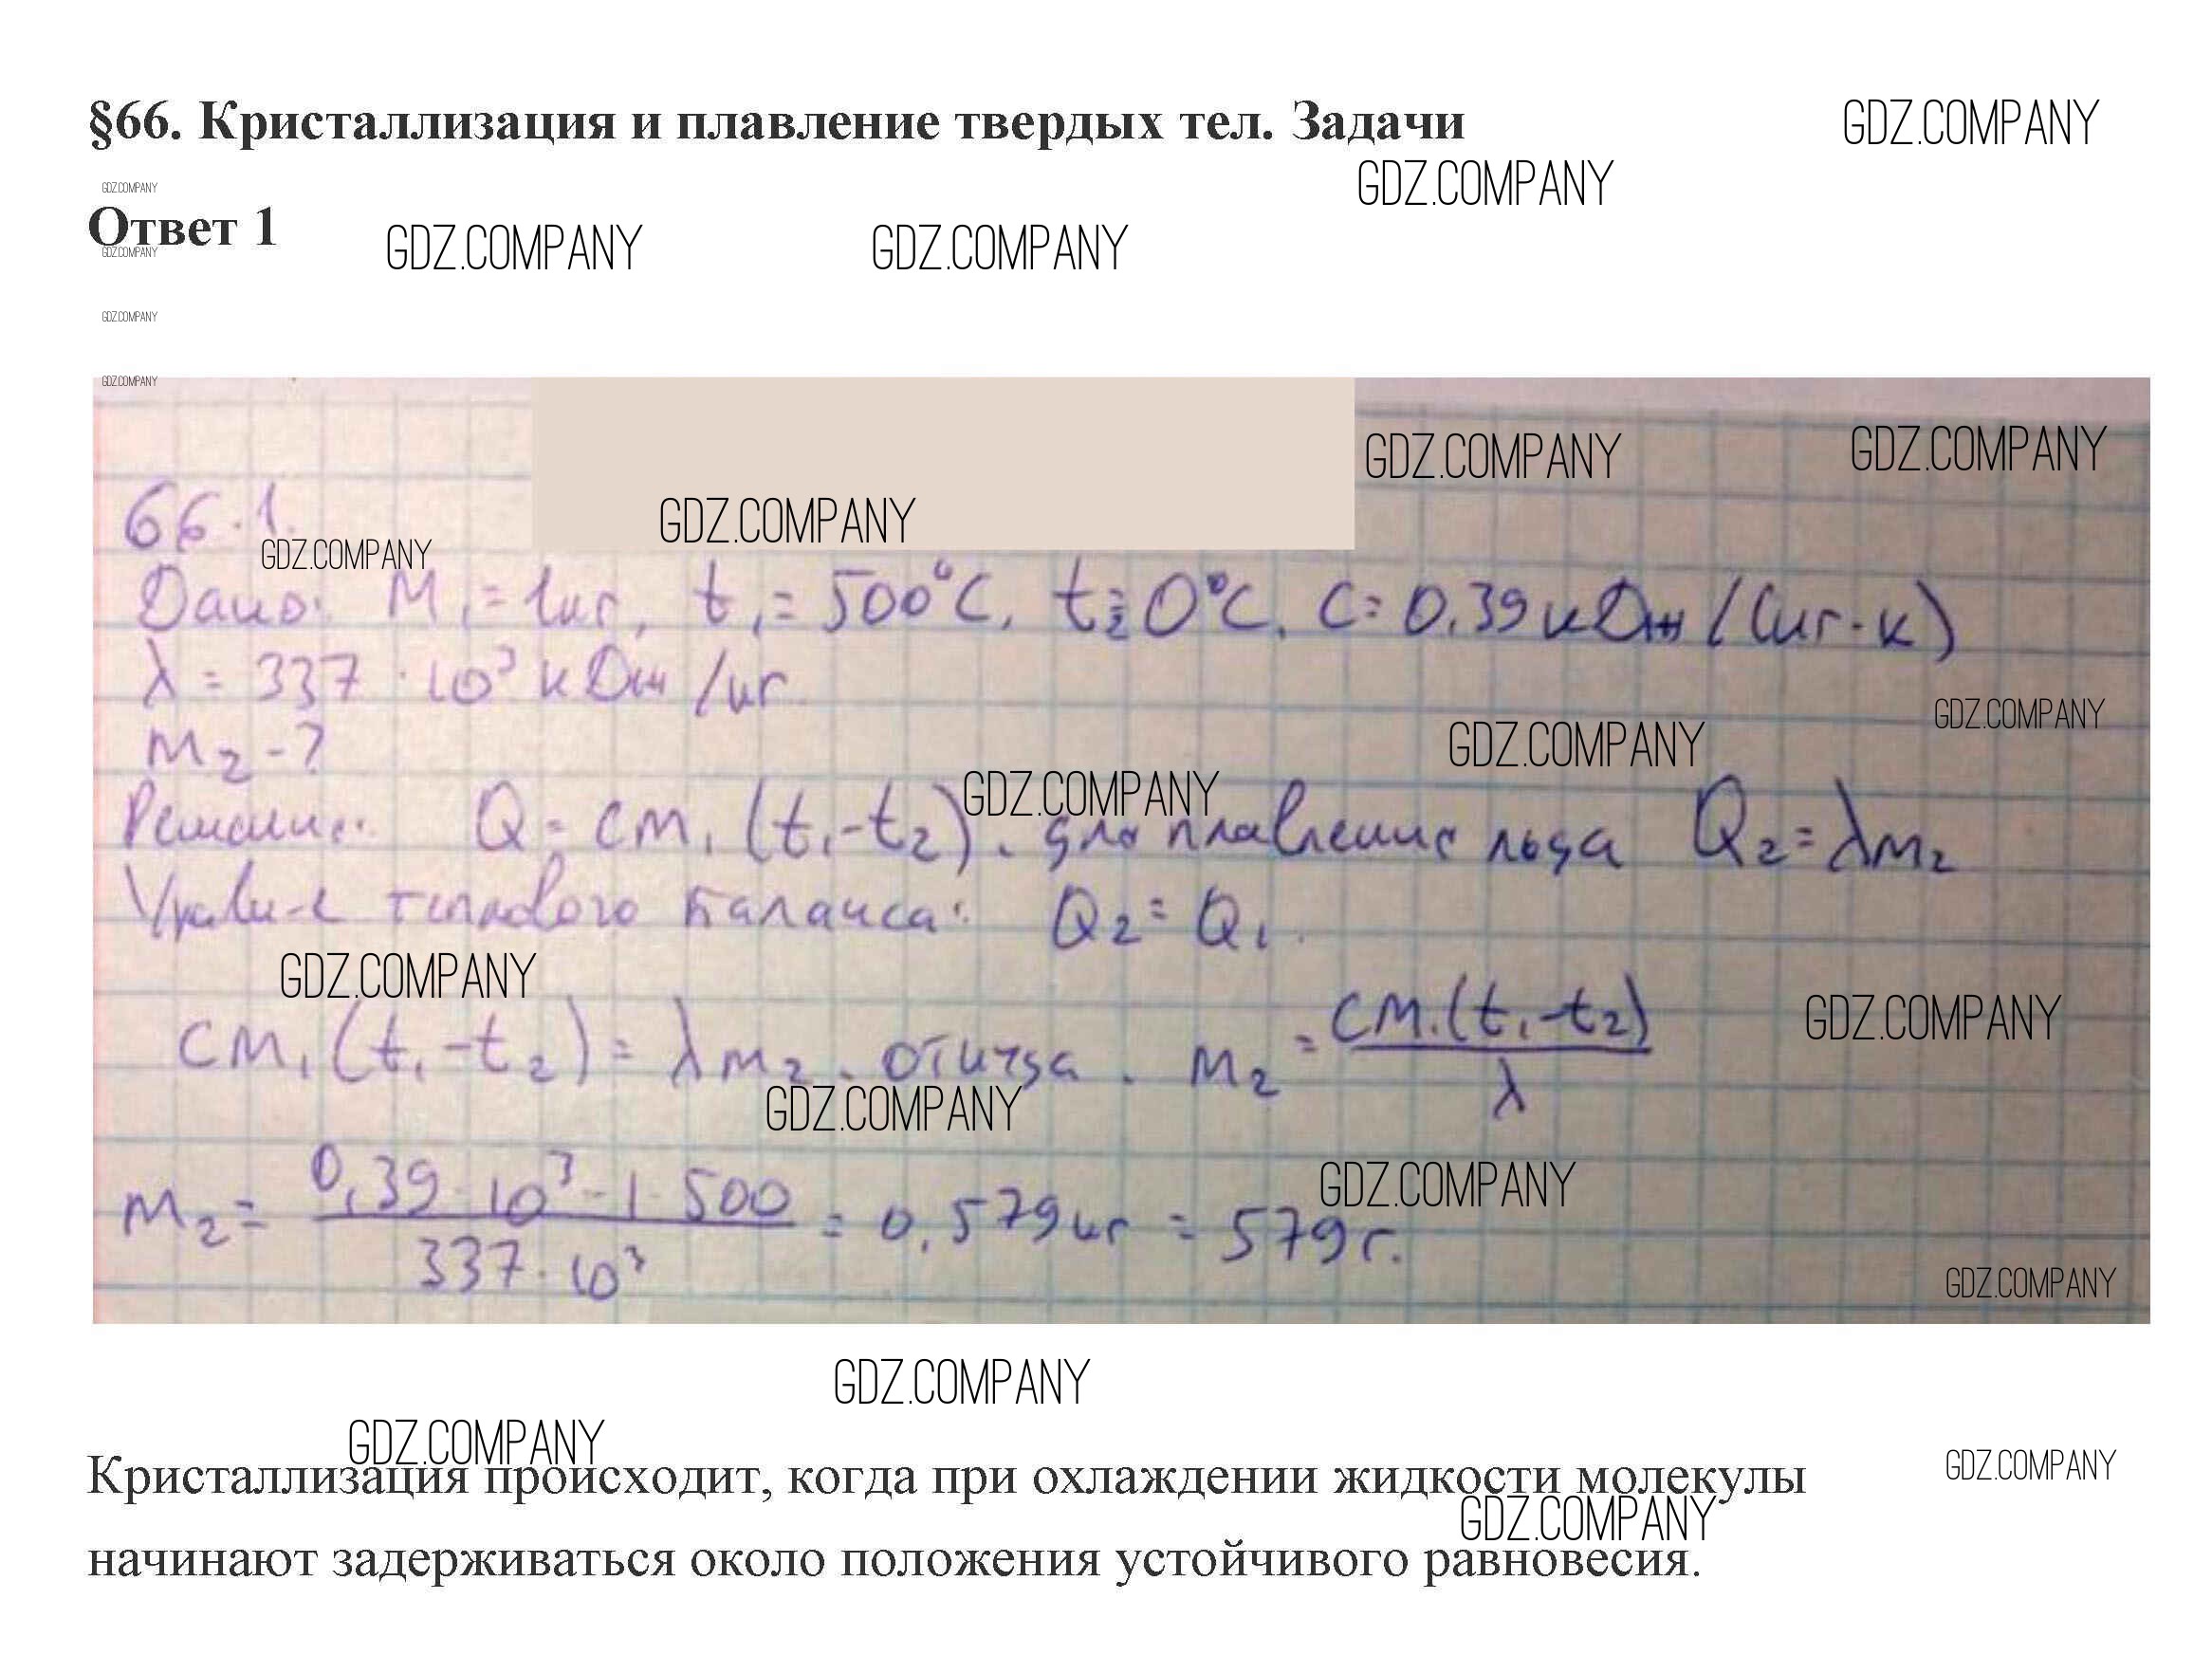 §66. Кристаллизация и плавление твердых тел. Задачи
GDZ.COMPANY
GDZ.COMPANY
GDZ.COMPANY
Ответ 1
GDZ.COMPANY
GDZ.COMPANY
GDZ.COMPANY
GDZ.COMPANY
GDZ.COMPANY
GDZ.COMPANY
GDZ.COMPANY
GDZ.COMPANY
66.1.
GDZ.COMPANY
Дано: M₁ = 1кг, t₁ = 500°C, t₂ = 0°C, C = 0,39 кДж/(кг·к)
λ = 337 · 10³ кДж/кг
GDZ.COMPANY
m₂ - ?
GDZ.COMPANY
GDZ.COMPANY
Решение: Q = cm₁ (t₁-t₂). для плавления льда Q₂ = λm₂
Уравн-е теплового баланса: Q₂ = Q₁.
GDZ.COMPANY
GDZ.COMPANY
cm₁(t₁-t₂) = λm₂. откуда. m₂ = cm₁(t₁-t₂) / λ
GDZ.COMPANY
GDZ.COMPANY
m₂ = 0,39·10³·1·500 / 337·10³ = 0,579кг = 579г.
GDZ.COMPANY
GDZ.COMPANY
GDZ.COMPANY
GDZ.COMPANY
Кристаллизация происходит, когда при охлаждении жидкости молекулы
GDZ.COMPANY
начинают задерживаться около положения устойчивого равновесия.